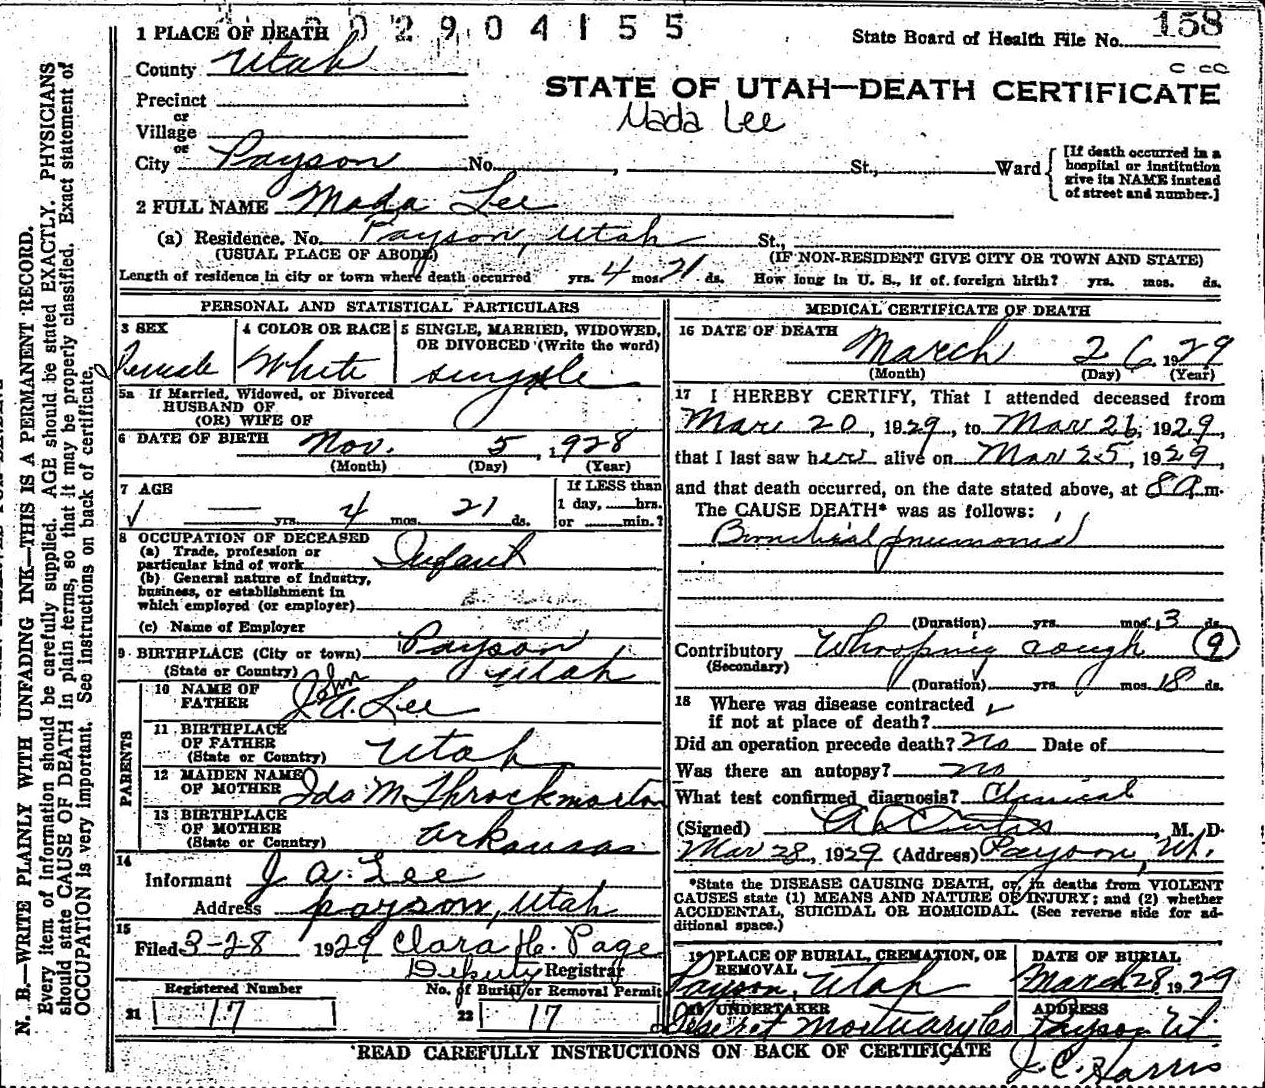 02904155
1 PLACE OF DEATH
State Board of Health File No. 158
County Utah
STATE OF UTAH—DEATH CERTIFICATE
Precinct
or
Village
or
Mada Lee
City Payson No. , St., Ward
[If death occurred in a hospital or institution give its NAME instead of street and number.]
2 FULL NAME Mada Lee
(a) Residence. No. Payson, Utah St.,
(USUAL PLACE OF ABODE) (IF NON-RESIDENT GIVE CITY OR TOWN AND STATE)
Length of residence in city or town where death occurred yrs. 4 mos. 21 ds. How long in U. S., if of foreign birth? yrs. mos. ds.
PERSONAL AND STATISTICAL PARTICULARS
3 SEX 4 COLOR OR RACE 5 SINGLE, MARRIED, WIDOWED,
OR DIVORCED (Write the word)
Female White single
5a If Married, Widowed, or Divorced
HUSBAND OF
(OR) WIFE OF
6 DATE OF BIRTH Nov. 5, 1928
(Month) (Day) (Year)
7 AGE If LESS than
1 day, hrs.
— yrs. 4 mos. 21 ds. or min.?
8 OCCUPATION OF DECEASED
(a) Trade, profession or
particular kind of work Infant
(b) General nature of industry,
business, or establishment in
which employed (or employer)
(c) Name of Employer
9 BIRTHPLACE (City or town) Payson
(State or Country) Utah
PARENTS
10 NAME OF
FATHER John
J. A. Lee
11 BIRTHPLACE
OF FATHER
(State or Country) Utah
12 MAIDEN NAME
OF MOTHER Ida M Throckmorton
13 BIRTHPLACE
OF MOTHER
(State or Country) Arkansas
14
Informant J A. Lee
Address Payson, Utah
15
Filed 3-28 1929 Clara H. Page
Deputy Registrar
Registered Number No. of Burial or Removal Permit
21 17 22 17
MEDICAL CERTIFICATE OF DEATH
16 DATE OF DEATH
March 26 1929
(Month) (Day) (Year)
17 I HEREBY CERTIFY, That I attended deceased from
Mar 20, 1929, to Mar 26, 1929,
that I last saw her alive on Mar 25, 1929,
and that death occurred, on the date stated above, at 8 a m.
The CAUSE DEATH* was as follows:
Bronchial pneumonia
(Duration) yrs. mos. 3 ds.
Contributory Whooping cough 9
(Secondary)
(Duration) yrs. mos. 18 ds.
18 Where was disease contracted
if not at place of death?
Did an operation precede death? No Date of
Was there an autopsy? no
What test confirmed diagnosis? Clinical
(Signed) , M. D.
Mar 28, 1929 (Address) Payson, Ut.
*State the DISEASE CAUSING DEATH, or, in deaths from VIOLENT
CAUSES state (1) MEANS AND NATURE OF INJURY; and (2) whether
ACCIDENTAL, SUICIDAL OR HOMICIDAL. (See reverse side for ad-
ditional space.)
19 PLACE OF BURIAL, CREMATION, OR
REMOVAL DATE OF BURIAL
Payson, Utah March 28, 1929
20 UNDERTAKER ADDRESS
Deseret Mortuary Co Payson Ut.
READ CAREFULLY INSTRUCTIONS ON BACK OF CERTIFICATE
J. C. Harris
N. B.—WRITE PLAINLY WITH UNFADING INK—THIS IS A PERMANENT RECORD.
Every item of information should be carefully supplied. AGE should be stated EXACTLY. PHYSICIANS
should state CAUSE OF DEATH in plain terms, so that it may be properly classified. Exact statement of
OCCUPATION is very important. See instructions on back of certificate.